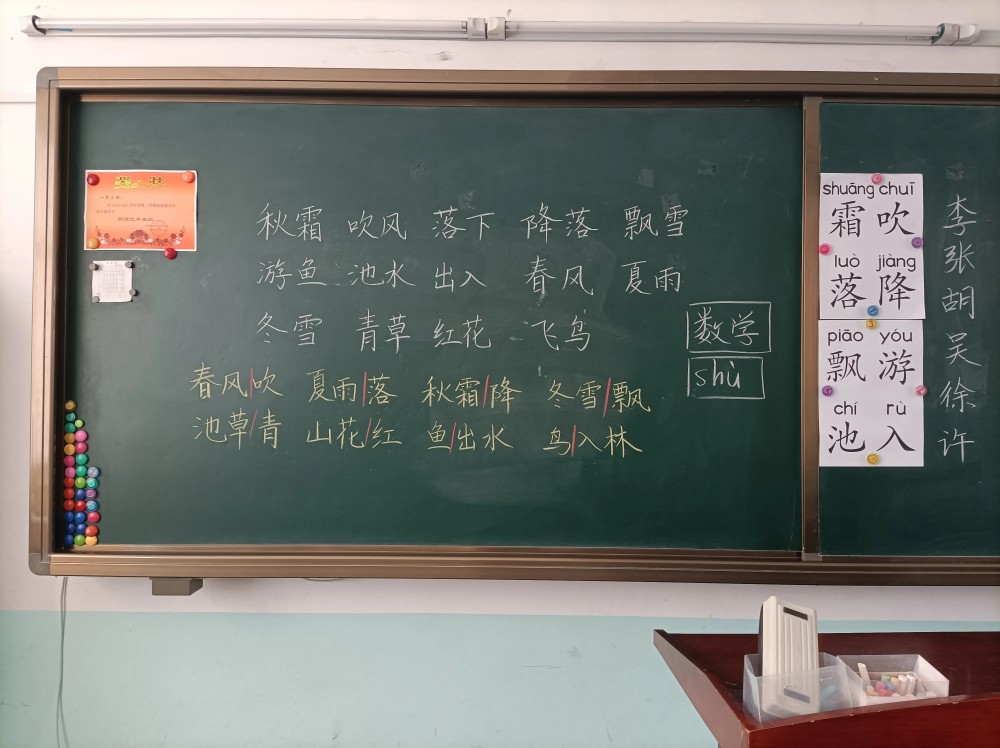 秋霜 吹风 落下 降落 飘雪
游鱼 池水 出入 春风 夏雨
冬雪 青草 红花 飞鸟
数学
shù
春风|吹 夏雨|落 秋霜|降 冬雪|飘
池草|青 山花|红 鱼|出水 鸟|入林
shuāng chuī
霜 吹
luò jiàng
落 降
piāo yóu
飘 游
chí rù
池 入
李
张
胡
吴
徐
许